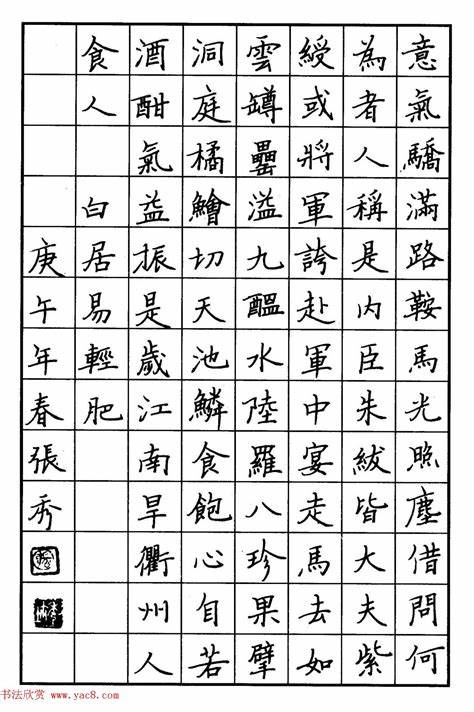 意氣驕滿路鞍馬光照塵借問何
為者人稱是內臣朱紱皆大夫紫
綬或將軍誇赴軍中宴走馬去如
雲罇罍溢九醞水陸羅八珍果擘
洞庭橘鱠切天池鱗食飽心自若
酒酣氣益振是歲江南旱衢州人
食人 白居易輕肥
庚午年春張秀
书法欣赏 www.yac8.com